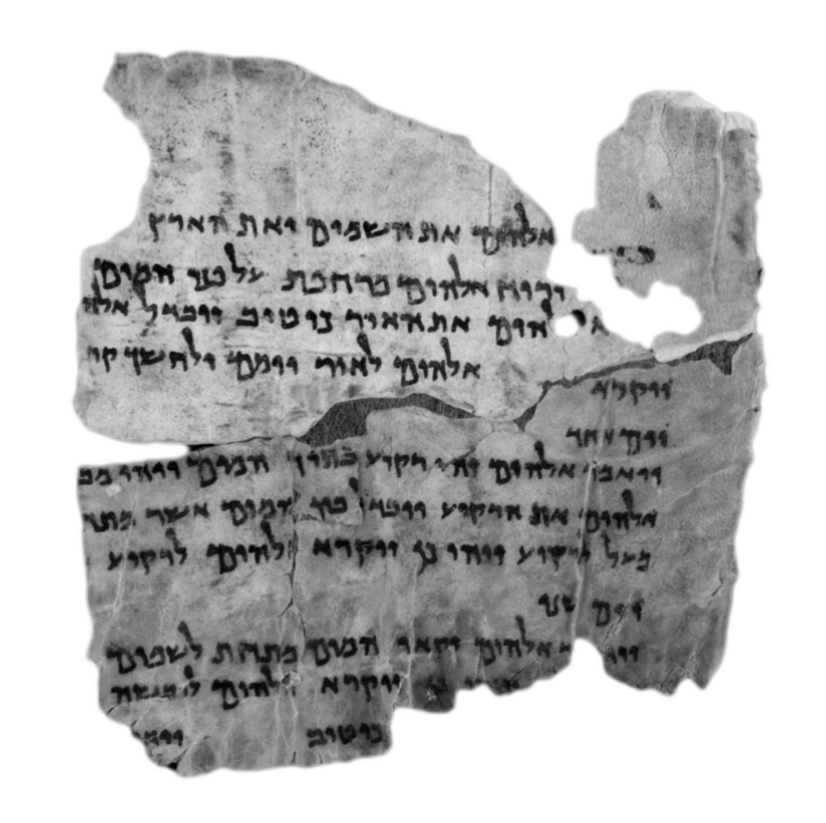 אלהים את השמים ואת הארץ
ורוח אלהים מרחפת על פני המים
להים את האור כי טוב ויבדל אלהי
אלהים לאור יומם ולחשך קר
ויקרא
יום אחד
ויאמר אלהים יהי רקיע בתוך המים ויהי מב
אלהים את הרקיע ויבדל בין המים אשר מתח
מעל לרקיע ויהי כן ויקרא אלהים לרקיע
יום שני
אלהים יקאו המים מתחת לשמים
ויקרא אלהים ליבשה
כי טוב